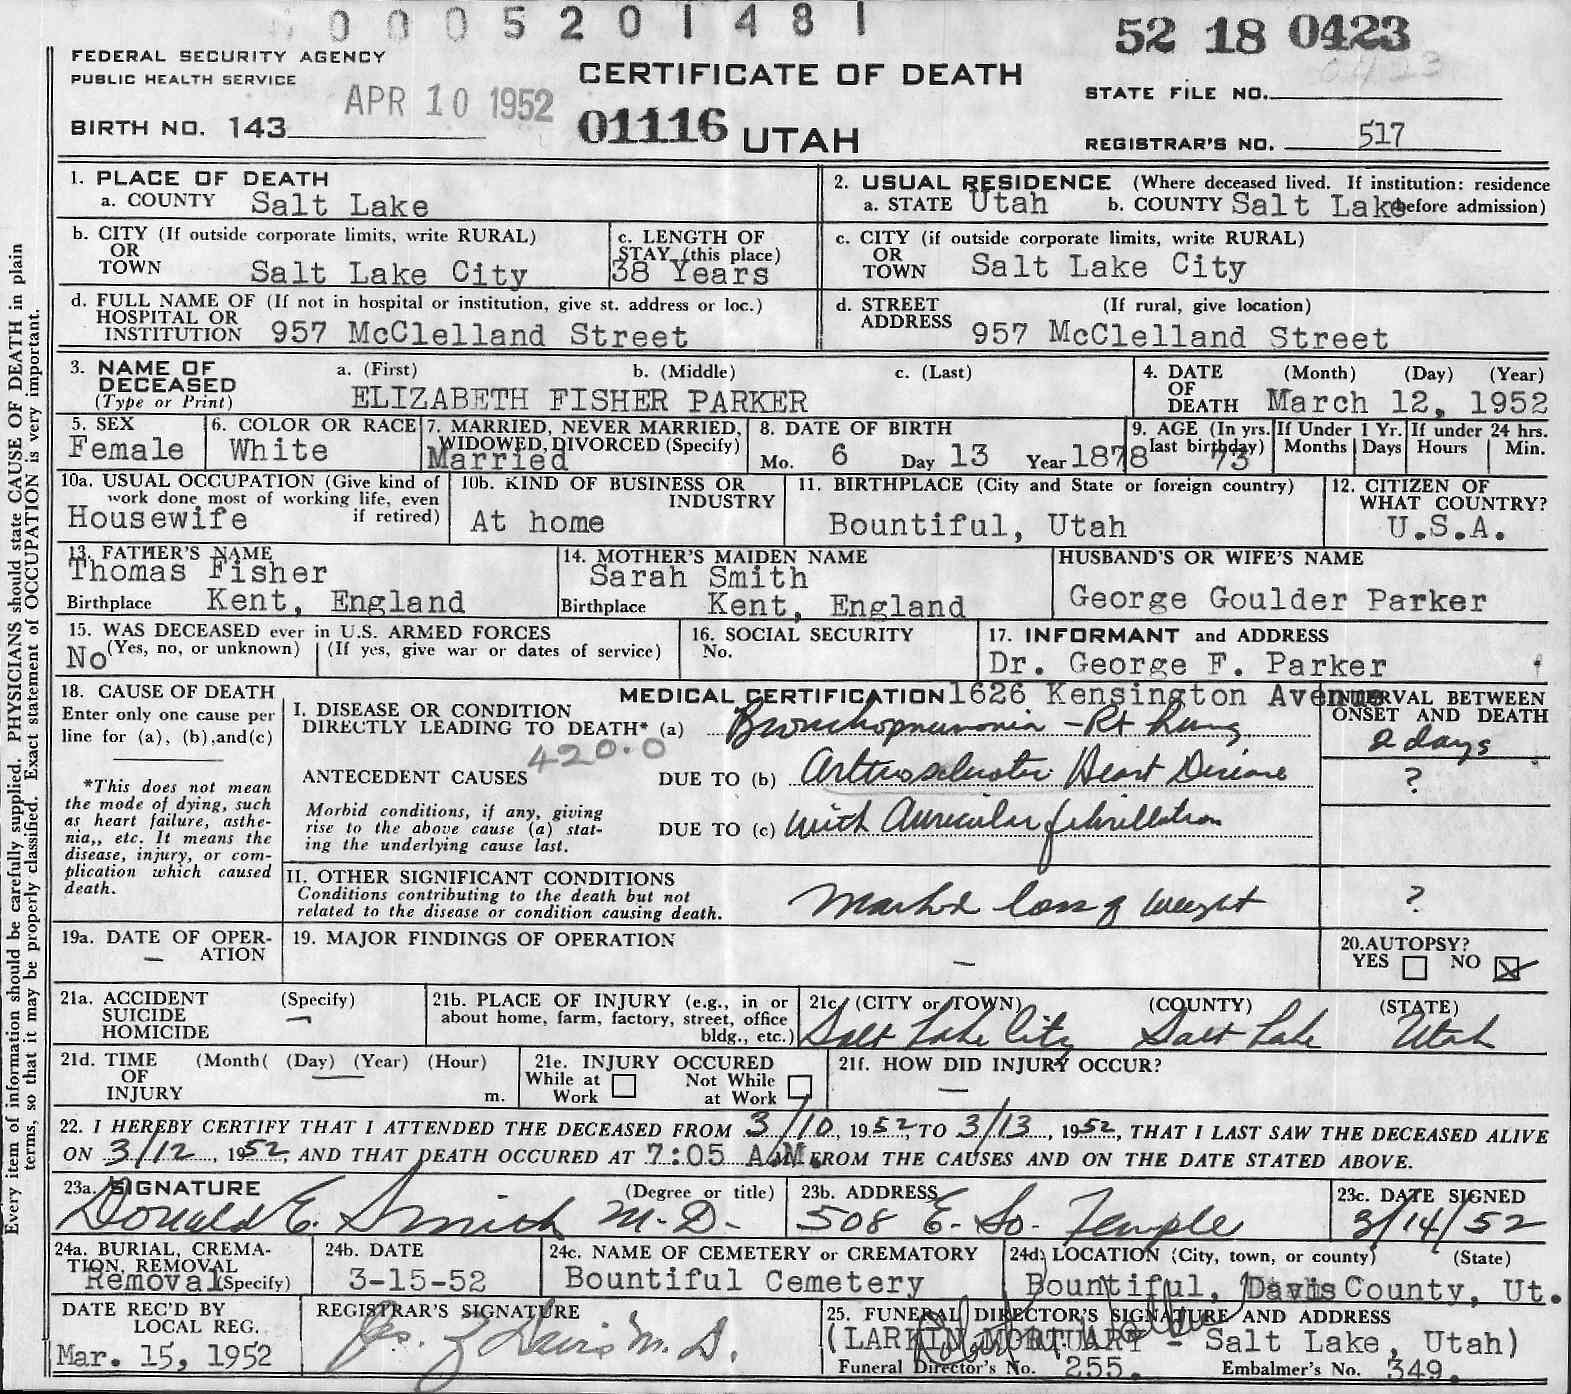 0005201481
52 18 0423
0423
FEDERAL SECURITY AGENCY
PUBLIC HEALTH SERVICE
APR 10 1952
CERTIFICATE OF DEATH
STATE FILE NO.
BIRTH NO. 143
01116 UTAH
REGISTRAR'S NO. 517
1. PLACE OF DEATH
a. COUNTY Salt Lake
2. USUAL RESIDENCE (Where deceased lived. If institution: residence before admission)
a. STATE Utah b. COUNTY Salt Lake
b. CITY (If outside corporate limits, write RURAL)
OR
TOWN Salt Lake City
c. LENGTH OF
STAY (this place)
38 Years
c. CITY (if outside corporate limits, write RURAL)
OR
TOWN Salt Lake City
d. FULL NAME OF (If not in hospital or institution, give st. address or loc.)
HOSPITAL OR
INSTITUTION 957 McClelland Street
d. STREET (If rural, give location)
ADDRESS 957 McClelland Street
3. NAME OF a. (First) b. (Middle) c. (Last)
DECEASED
(Type or Print) ELIZABETH FISHER PARKER
4. DATE (Month) (Day) (Year)
OF
DEATH March 12, 1952
5. SEX
Female
6. COLOR OR RACE
White
7. MARRIED, NEVER MARRIED,
WIDOWED, DIVORCED (Specify)
Married
8. DATE OF BIRTH
Mo. 6 Day 13 Year 1878
9. AGE (In yrs.
last birthday) 73
If Under 1 Yr.
Months Days
If under 24 hrs.
Hours Min.
10a. USUAL OCCUPATION (Give kind of
work done most of working life, even
if retired)
Housewife
10b. KIND OF BUSINESS OR
INDUSTRY
At home
11. BIRTHPLACE (City and State or foreign country)
Bountiful, Utah
12. CITIZEN OF
WHAT COUNTRY?
U.S.A.
13. FATHER'S NAME
Thomas Fisher
Birthplace Kent, England
14. MOTHER'S MAIDEN NAME
Sarah Smith
Birthplace Kent, England
HUSBAND'S OR WIFE'S NAME
George Goulder Parker
15. WAS DECEASED ever in U.S. ARMED FORCES
No (Yes, no, or unknown) (If yes, give war or dates of service)
16. SOCIAL SECURITY
No.
17. INFORMANT and ADDRESS
Dr. George F. Parker
1626 Kensington Avenue
18. CAUSE OF DEATH
Enter only one cause per
line for (a), (b),and(c)
*This does not mean
the mode of dying, such
as heart failure, asthe-
nia,, etc. It means the
disease, injury, or com-
plication which caused
death.
MEDICAL CERTIFICATION
INTERVAL BETWEEN
ONSET AND DEATH
I. DISEASE OR CONDITION
DIRECTLY LEADING TO DEATH* (a) Bronchopneumonia - Rt Lung
2 days
420.0
ANTECEDENT CAUSES DUE TO (b) Arteriosclerotic Heart Disease
?
Morbid conditions, if any, giving
rise to the above cause (a) stat-
ing the underlying cause last.
DUE TO (c) with Auricular fibrillation
II. OTHER SIGNIFICANT CONDITIONS
Conditions contributing to the death but not
related to the disease or condition causing death.
Marked loss of weight
?
19a. DATE OF OPER-
ATION
—
19. MAJOR FINDINGS OF OPERATION
—
20.AUTOPSY?
YES NO X
21a. ACCIDENT (Specify)
SUICIDE —
HOMICIDE
21b. PLACE OF INJURY (e.g., in or
about home, farm, factory, street, office
bldg., etc.)
21c. (CITY or TOWN) (COUNTY) (STATE)
Salt Lake City Salt Lake Utah
21d. TIME (Month( (Day) (Year) (Hour)
OF —
INJURY m.
21e. INJURY OCCURED
While at Work Not While at Work
21f. HOW DID INJURY OCCUR?
—
22. I HEREBY CERTIFY THAT I ATTENDED THE DECEASED FROM 3/10, 1952, TO 3/13, 1952, THAT I LAST SAW THE DECEASED ALIVE
ON 3/12, 1952, AND THAT DEATH OCCURED AT 7:05 A.M. FROM THE CAUSES AND ON THE DATE STATED ABOVE.
23a. SIGNATURE (Degree or title)
Donald E. Smith M.D.
23b. ADDRESS
508 E. So. Temple
23c. DATE SIGNED
3/14/52
24a. BURIAL, CREMA-
TION, REMOVAL
Removal (Specify)
24b. DATE
3-15-52
24c. NAME OF CEMETERY or CREMATORY
Bountiful Cemetery
24d) LOCATION (City, town, or county) (State)
Bountiful, Davis County, Ut.
DATE REC'D BY
LOCAL REG.
Mar. 15, 1952
REGISTRAR'S SIGNATURE
Davis M.D.
25. FUNERAL DIRECTOR'S SIGNATURE AND ADDRESS
(LARKIN MORTUARY - Salt Lake, Utah)
Funeral Director's No. 255. Embalmer's No. 349.
Every item of information should be carefully supplied. PHYSICIANS should state CAUSE OF DEATH in plain
terms, so that it may be properly classified. Exact statement of OCCUPATION is very important.